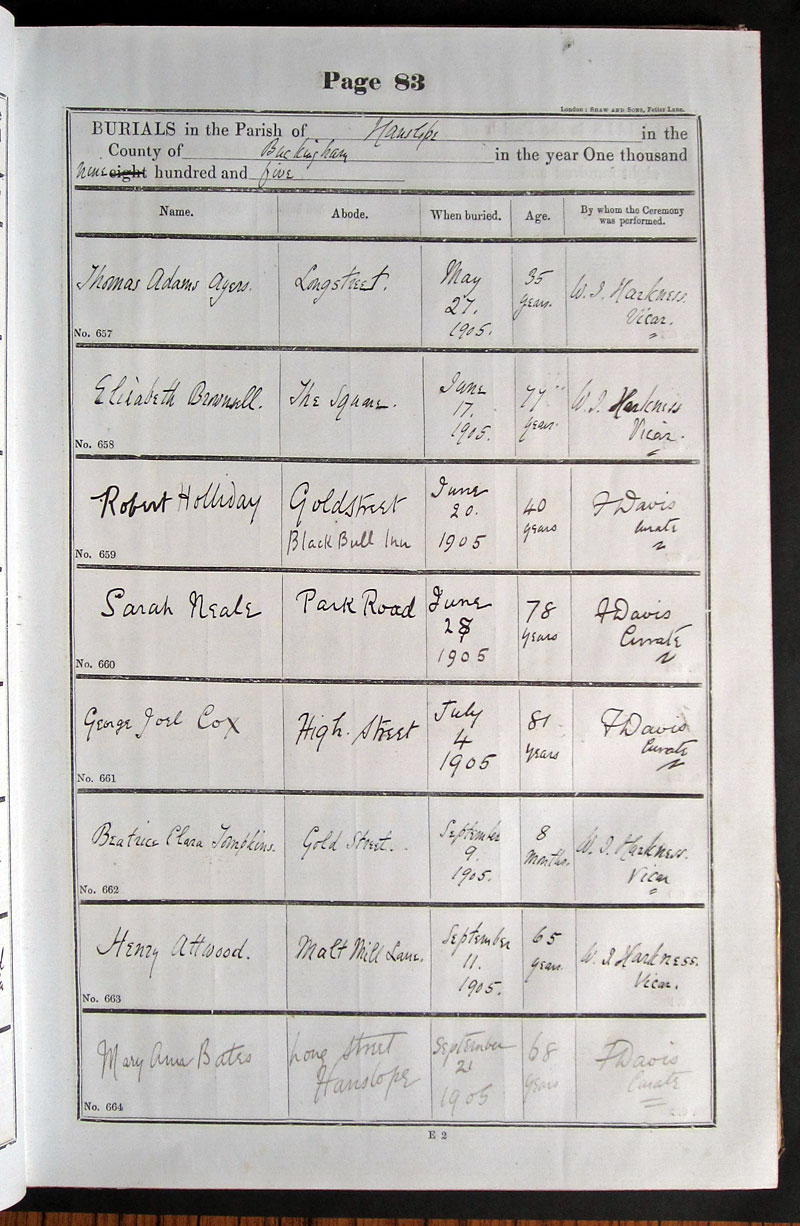 Page 83
London: Shaw and Sons, Fetter Lane.
BURIALS in the Parish of Hanslope in the
County of Buckingham in the year One thousand
nine eight hundred and five
Name. Abode. When buried. Age. By whom the Ceremony was performed.
Thomas Adams Ayers. Longstreet. May 27. 1905. 35 years. W. J. Harkness. Vicar.
No. 657
Elizabeth Brownsell. The Square. June 17. 1905. 77 years. W. J. Harkness Vicar.
No. 658
Robert Holliday Goldstreet Black Bull Inn June 20. 1905 40 years F Davis Curate
No. 659
Sarah Neale Park Road June 28 1905 78 years F Davis Currate
No. 660
George Joel Cox High Street July 4 1905 81 years F Davis Curate
No. 661
Beatrice Clara Tompkins. Gold Street. September 9. 1905. 8 months. W. J. Harkness. Vicar
No. 662
Henry Attwood. Malt Mill Lane. September 11. 1905. 65 years. W. J. Harkness. Vicar.
No. 663
Mary Ann Bates Long Street Hanslope September 21 1905 68 years F Davis Curate
No. 664
E 2